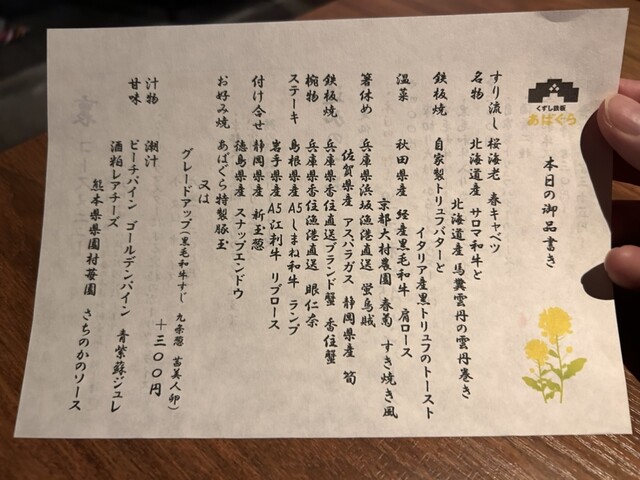 くずし鉄板
あばぐら
本日の御品書き
すり流し 桜海老 春キャベツ
名物 北海道産 サロマ和牛と
北海道産 馬糞雲丹の雲丹巻き
鉄板焼 自家製トリュフバターと
イタリア産黒トリュフのトースト
温菜 秋田県産 経産黒毛和牛 肩ロース
京都大村農園 春菊 すき焼き風
箸休め 兵庫県浜坂漁港直送 蛍烏賊
佐賀県産 アスパラガス 静岡県産 筍
鉄板焼 兵庫県香住直送ブランド蟹 香住蟹
椀物 兵庫県香住漁港直送 眼仁奈
ステーキ 島根県産 A5しまね和牛 ランプ
岩手県産 A5江刺牛 リブロース
付け合せ 静岡県産 新玉葱
徳島県産 スナップエンドウ
お好み焼 あばぐら特製豚玉
又は
グレードアップ(黒毛和牛すじ 九条葱 茜美人卵)
+三〇〇円
汁物 潮汁
甘味 ピーチパイン ゴールデンパイン 青紫蘇ジュレ
酒粕レアチーズ
熊本県県園村苺園 さちのかのソース